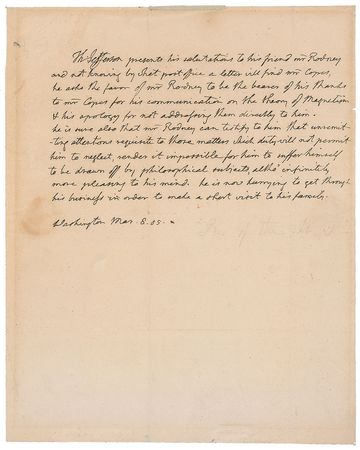 Th: Jefferson presents his salutations to his friend mr Rodney
and not knowing by what post office a letter will find mr Copes,
he asks the favor of mr Rodney to be the bearer of his thanks
to mr Copes for his communication on the theory of Magnetism
& his apology for not addressing them directly to him.
he is sure also that mr Rodney can testify to him that unremit-
ting attentions requisite to those matters which duty will not permit
him to neglect, render it impossible for him to suffer himself
to be drawn off by philosophical subjects, altho' infinitely
more pleasing to his mind. he is now hurrying to get through
his business in order to make a short visit to his family.
Washington Mar. 8. 05.